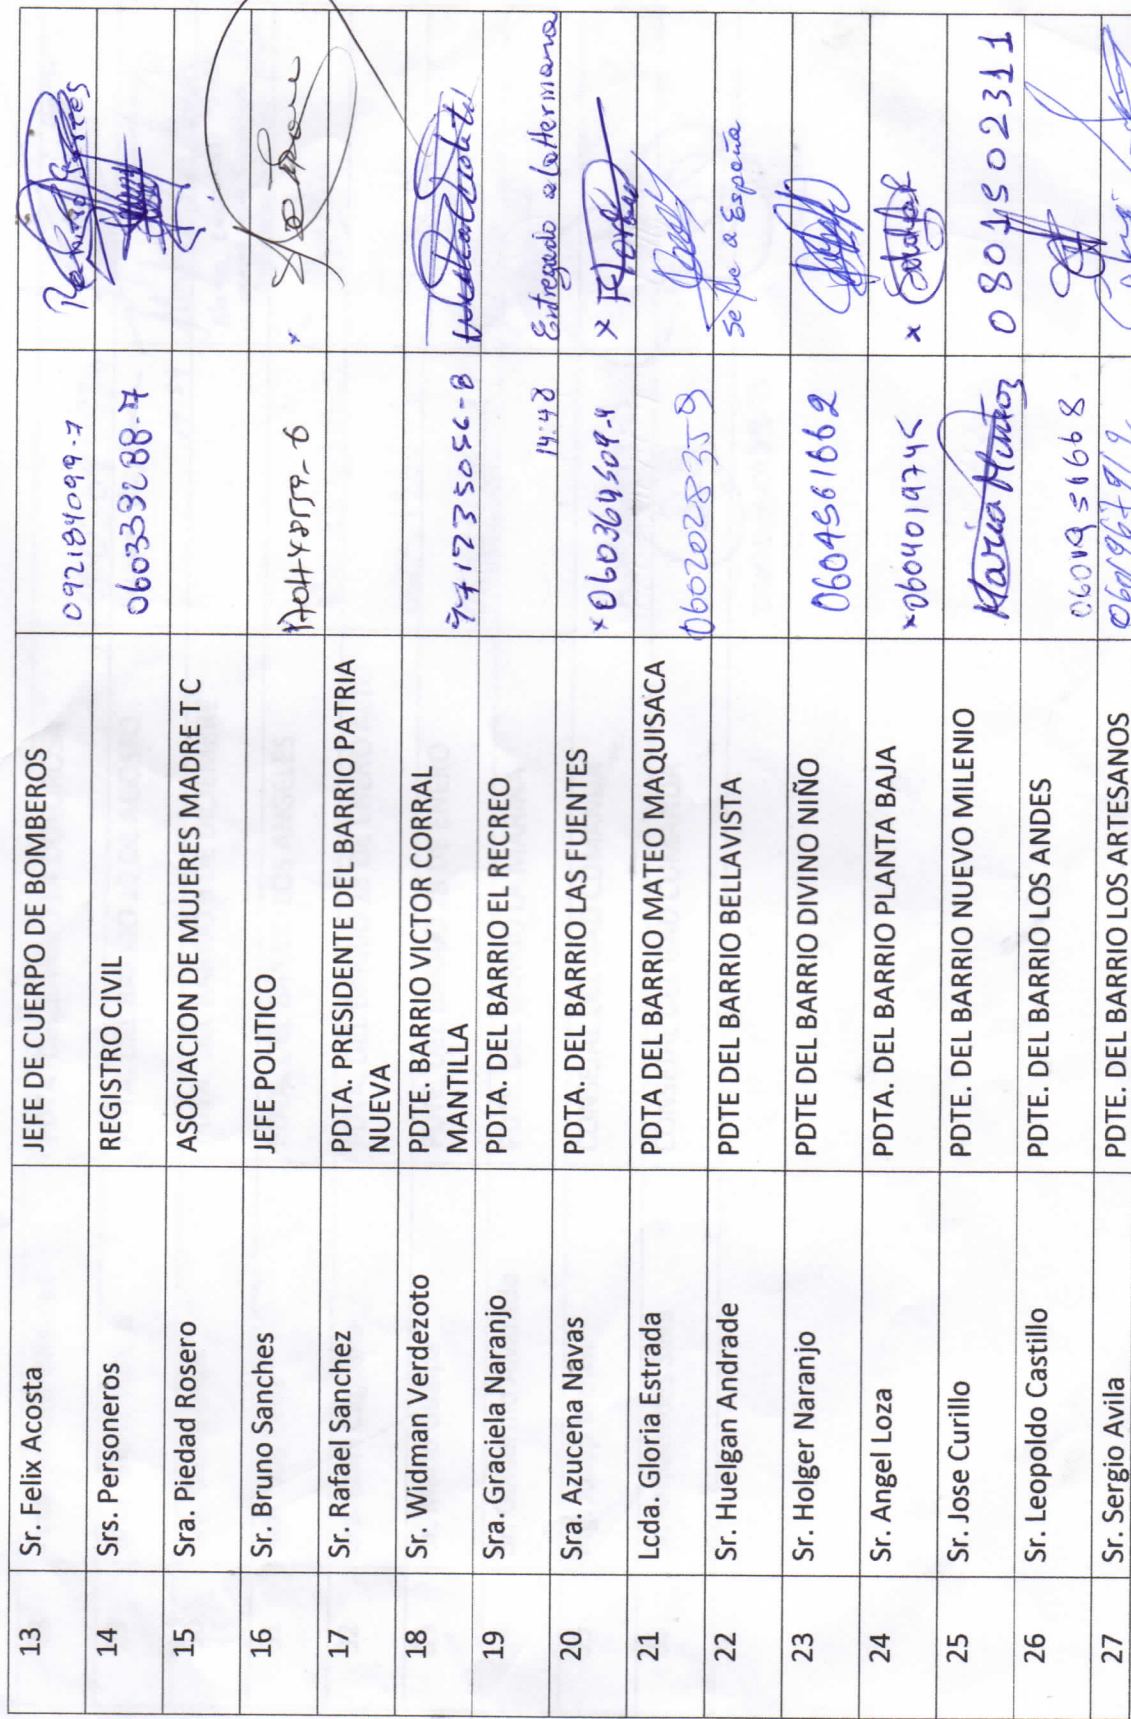 13 Sr. Felix Acosta JEFE DE CUERPO DE BOMBEROS 092184099-7
14 Srs. Personeros REGISTRO CIVIL 060339288-7
15 Sra. Piedad Rosero ASOCIACION DE MUJERES MADRE T C
16 Sr. Bruno Sanches JEFE POLITICO x
17 Sr. Rafael Sanchez PDTA. PRESIDENTE DEL BARRIO PATRIA
NUEVA
18 Sr. Widman Verdezoto PDTE. BARRIO VICTOR CORRAL
MANTILLA 171235056-8
19 Sra. Graciela Naranjo PDTA. DEL BARRIO EL RECREO 14:48 Entregado a la Hermana
20 Sra. Azucena Navas PDTA. DEL BARRIO LAS FUENTES x060364509-4 x
21 Lcda. Gloria Estrada PDTA DEL BARRIO MATEO MAQUISACA 0602028359
22 Sr. Huelgan Andrade PDTE DEL BARRIO BELLAVISTA Se fue a España
23 Sr. Holger Naranjo PDTE DEL BARRIO DIVINO NIÑO 0604561662
24 Sr. Angel Loza PDTA. DEL BARRIO PLANTA BAJA x060401974 x
25 Sr. Jose Curillo PDTE. DEL BARRIO NUEVO MILENIO Maria Muñoz 0801502311
26 Sr. Leopoldo Castillo PDTE. DEL BARRIO LOS ANDES
27 Sr. Sergio Avila PDTE. DEL BARRIO LOS ARTESANOS